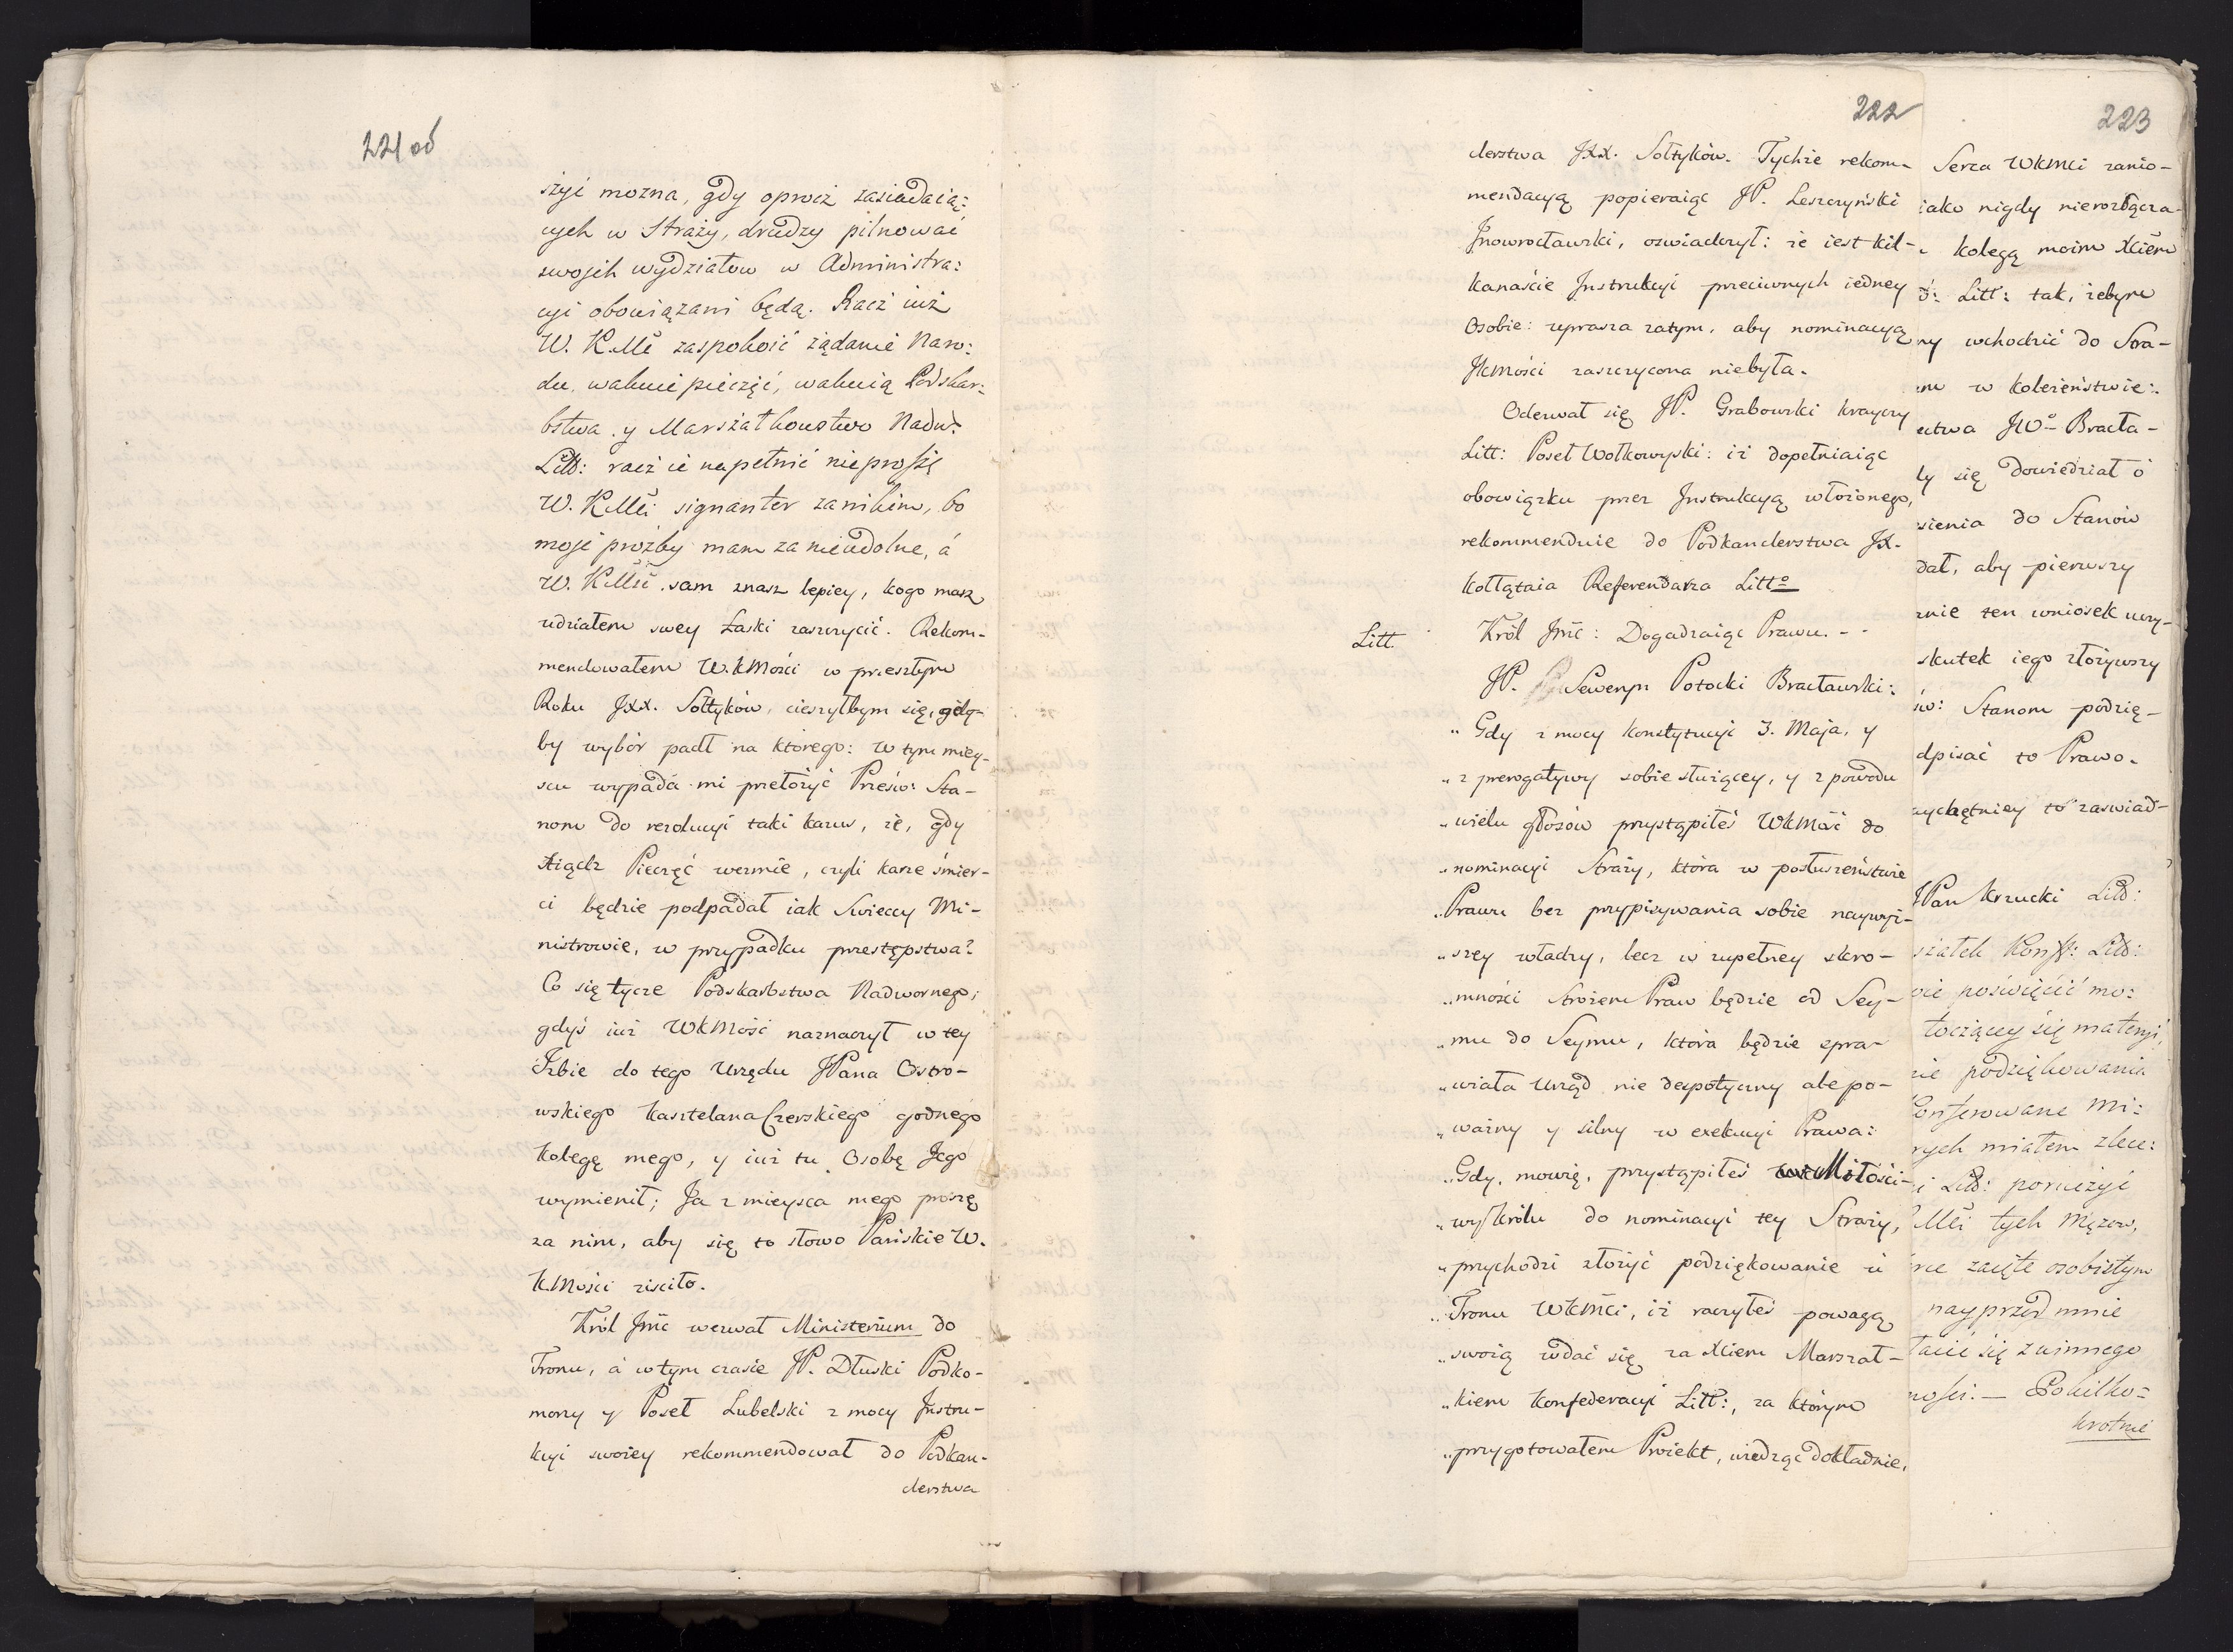 221 od
szyi mozna, gdy oprocz zasiadaią:
cych w Straży, drudzy pilnować
swojch wydziałow w Administra:
cyi obowiązani będą. Racz iuż
W. K. Mć zaspokoić żądanie Naro:
du, wakuie pieczęć, wakuią Podskar:
bstwa y Marszałkowstwo Nadw:
Litt: racz ie napełnić nieproszę
W. K. Mći signanter zanikim, bo
moje prozby mam za nieudolne, á
W. K. Mść sam znasz lepiey, kogo masz
udziałem swey Łaski zaszczycić. Rekom-
mendowałem W. K Mości w przeszłym
Roku JXX. Sołtyków, cieszyłbym się, gdy-
by wybór padł na którego: w tym miey-
scu wypada mi przełożyć Prześw: Sta-
nom do rezolucyi taki kazus, że, gdy
Xiądz Pieczęć wezmie, czyli karze śmier-
ci będzie podpadał iak Swieccy Mi-
nistrowie, w przypadku przestępstwa?
Co się tycze Podskarbstwa Nadwornego,
gdyś iuż WKMość naznaczył w tey
Izbie do tego Urzędu JPana Ostro-
wskiego Kasztelana Czerskiego godnego
Kolegę mego, y iuż tu Osobę Jego
wymienił; Ja z mieysca mego proszę
za nim, aby się to słowo Pańskie W.
K Mości ziściło.
Król Jmć wezwał Ministerium do
Tronu, á w tym czasie JP. Dłuski Podko-
morzy y Poseł Lubelski z mocy Instru-
kcyi swoiey rekommendował do Podkan-
clerstwa
222
clerstwa JXX. Sołtyków. Tychże rekom-
mendacyą popieraiąc JP. Leszczyński
Jnowrocławski, oswiadczył: że iest kil-
kanaście Jnstrukcyi przeciwnych iedney
Osobie: uprasza zatym, aby nominacyą
JKMości zaszczycona niebyła.
Odezwał się JP. Grabowski krayczy
Litt: Poseł Wołkowyski: iż dopełniaiąc
obowiązku przez Jnstrukcyą włożonego,
rekommenduie do Podkanclerstwa JX.
Kołłątaia Referendarza Litt:o
Litt.
Król Jmć: Dogadzaiąc Prawu. - -
JP. Seweryn Potocki Bracławski:
„ Gdy z mocy Konstytucyi 3. Maja, y
„ z prerogatywy sobie służącey, y z powodu
„ wielu głosów przystąpiłeś WKMość do
„ nominacyi Straży, która w posłuszeństwie
„ Prawu bez przypisywania sobie naywyż-
„ szey władzy, lecz w zupełney skro-
„ mności Stróżem Praw będzie od Sey-
„ mu do Seymu, która będzie spra-
„ wiała Urząd nie despotyczny ale po-
„ ważny y silny w exekucyi Prawa:
„ Gdy, mowię, przystąpiłeś Miłości-
„ wy Królu do nominacyi tey Straży,
„ przychodzi złożyć podziękowanie u
„ Tronu WKMći, iż raczyłeś powagą
„ swoią wdać się za Xiem Marszał-
„ kiem Konfederacyi Litt:, za którym
„ przygotowałem Proiekt, wiedząc dokładnie,
223
Serca WKMći zanio-
iako nigdy nierozłącza-
kolegą moim Xiem
Litt: tak, żebym
ny wchodzić do Stra-
w koleżeństwie:
Jwo Bracła-
ły się dowiedział o
sienia do Stanów
dał, aby pierwszy
ten wniosek uczy-
skutek iego złożywszy
Stanom podzię-
dpisać to Prawo.
aychętniey to zaswiad-
JPan Krzucki Litt:
szałek Konff: Litt:
poświęcić mo:
toczącey się materyi,
podziękowania
Konferowane Mi:
rych miałem zlece:
Litt: poruczyć
Mći tych Mężow,
zaięte osobistym
nayprzod mnie
się z winnego
nosci: — Pokilko=
krotnie